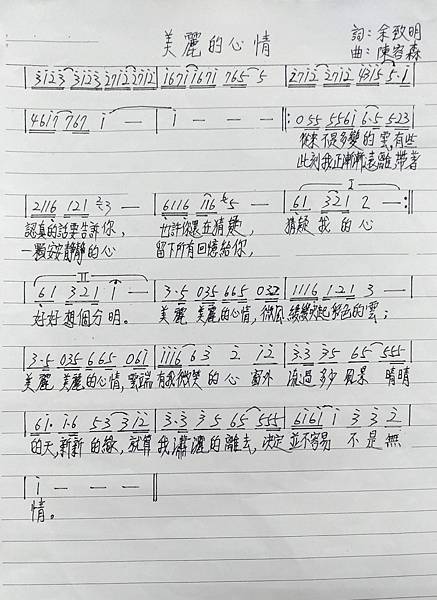 美麗的心情
詞：余致明
曲：陳容森
3123 3123 2712 2712 | 1671 1671 765 5 | 2712 2712 4315 5·1
4617 767 1 — | 1 — — — ‖: 055 5561 6·5 523
從來不是多變的雲,有些
此刻我正漸漸遠離 帶著
2116 121 3 — | 6116 165 — | 61 321 2 — :‖
認真的話要告訴你， 也許你還在猜疑， 猜疑我的心
一顆安安靜靜的心 留下所有回憶給你，
II
61 321 1 — | 3·5 035 665 032 | 1116 121 3 —
好好想個分明。 美麗 美麗的心情,微風 緩緩吹起彩色的雲；
3·5 035 665 061 | 1116 63 2 12 | 3·3 35 65 555
美麗 美麗的心情,雲端 有我微笑的心 窗外 流過多少風景 晴晴
61· 1·6 53 312 | 3·3 35 65 555 | 6161 1 3 3 2
的天,新新的綠，就算 我瀟灑的離去,決定 並不容易 不是無
1 — — — ‖
情。